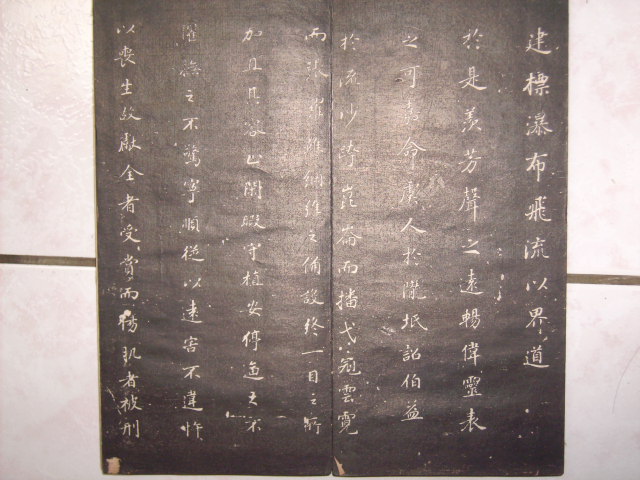 建標瀑布飛流以界道
於是羨芳聲之遠暢偉靈表
之可嘉命虞人於隴坻詔伯益
於流沙跨崑崙而播弋冠雲霓
而張羅雖綱維之備設終一目之所
加且其容止閑暇守植安停逼之不
懼撫之不驚寧順從以遠害不違忤
以喪生故獻全者受賞而傷肌者被刑